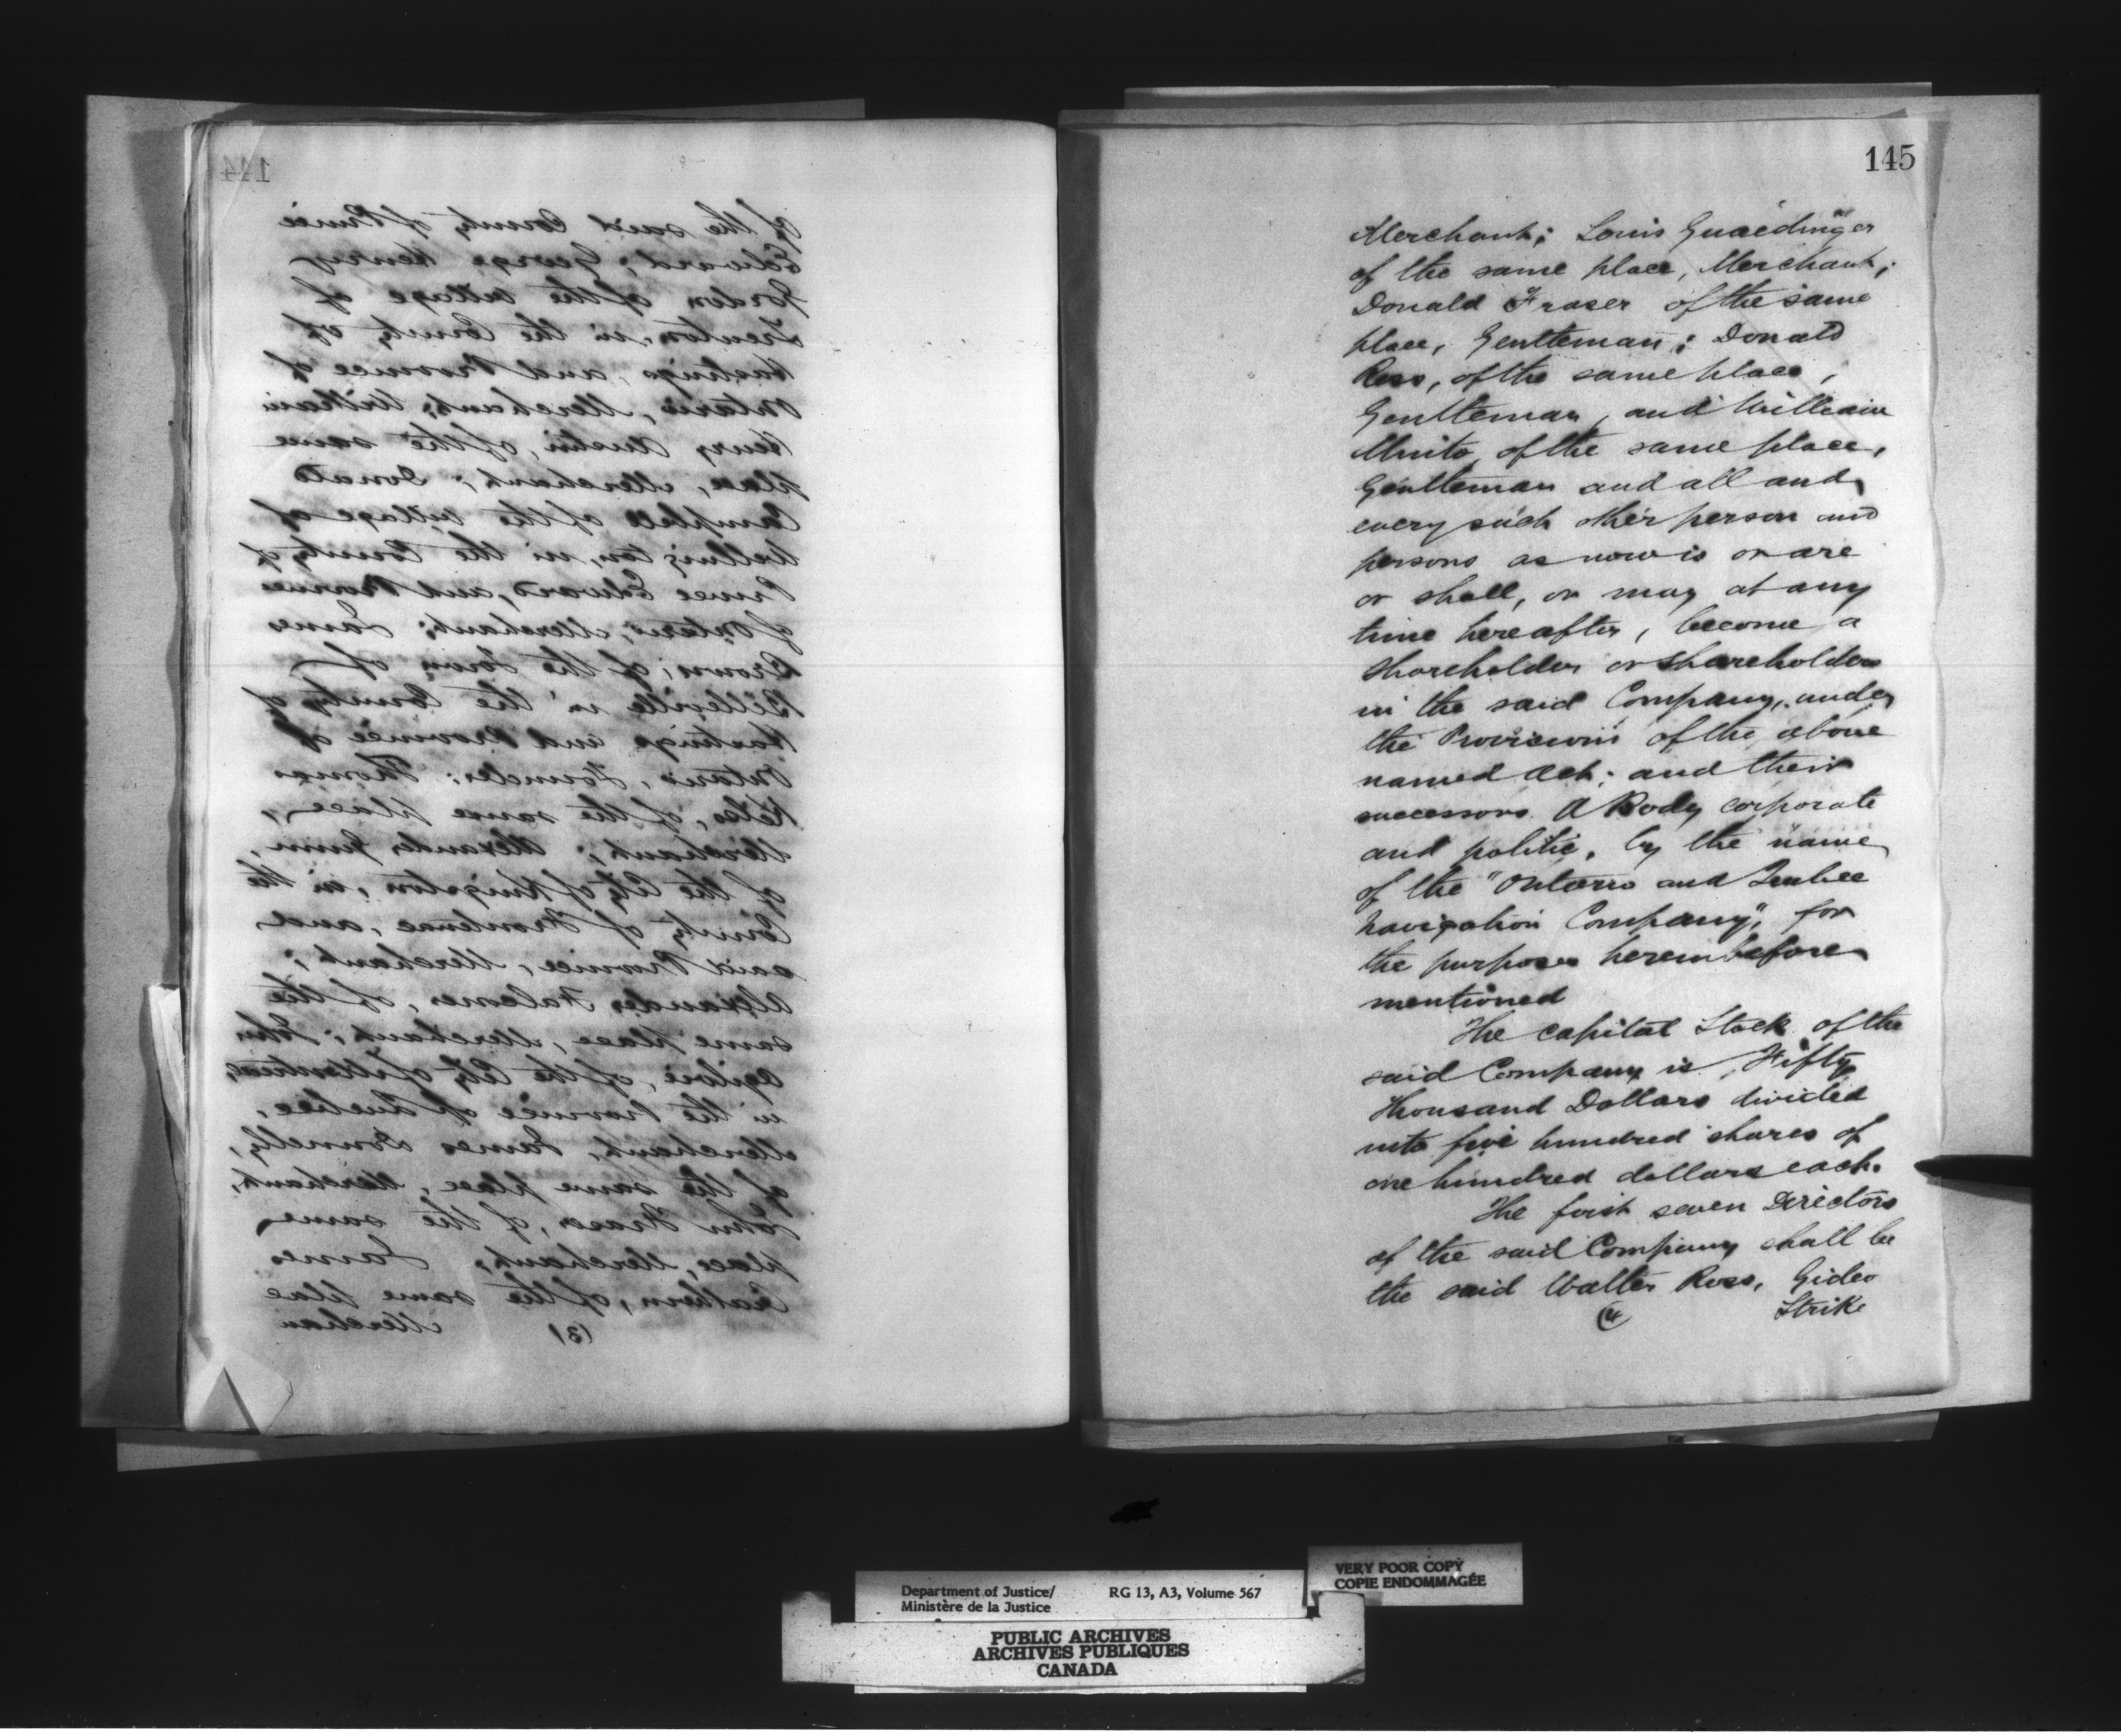 144
of the said County of Prince
Edward; George Henry
Gordon of the village of
Trenton, in the County of
Hastings, and Province of
Ontario, Merchant; William
Henry Austin, of the same
place, Merchant; Donald
Campbell of the village of
Wellington, in the County of
Prince Edward, and Province
of Ontario, Merchant; James
Brown; of the Town of
Belleville in the County of
Hastings and Province of
Ontario, Founder; Thomas
Kelso, of the same place,
Merchant; Alexander Gunn,
of the City of Kingston, in the
County of Frontenac, and
said Province, Merchant;
Alexander, of the
same place, Merchant; John
Ogilvie, of the City of Montreal,
in the Province of Quebec,
Merchant, James Donnelly,
of the same place, Merchant,
John Fraser, of the same
place, Merchant; James
of the same place
Merchan
(3)
145
Merchant; Louis Guaedinger
of the same place, Merchant;
Donald Fraser of the same
place, Gentleman; Donald
Ross, of the same place,
Gentleman, and William
of the same place,
Gentleman and all and
every such other person and
persons as now is or are
or shall, or may at any
time hereafter, become a
shareholder or shareholders
in the said Company, under
the Provisions of the above
named Act; and their
successors. A Body corporate
and politic, by the name
of the "Ontario and Quebec
Navigation Company", for
the purposes hereinbefore
mentioned
The capital Stock of the
said Company is Fifty
Thousand Dollars divided
into five hundred shares of
one hundred dollars each.
The first seven Directors
of the said Company shall be
the said Walter Ross, Gideo
Strike
(4
Department of Justice/
Ministère de la Justice
RG 13, A3, Volume 567
VERY POOR COPY
COPIE ENDOMMAGÉE
PUBLIC ARCHIVES
ARCHIVES PUBLIQUES
CANADA